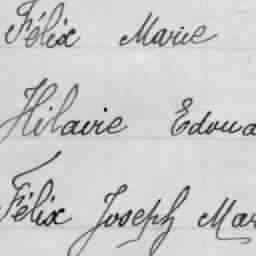 Félix Marie
Hilaire Edoua
Félix Joseph Mar